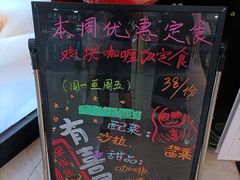 本周优惠定食
鸡块咖喱饭定食
(周一至周五) 38/份
有喜
配菜:
沙拉
酱菜
甜品:
咖啡